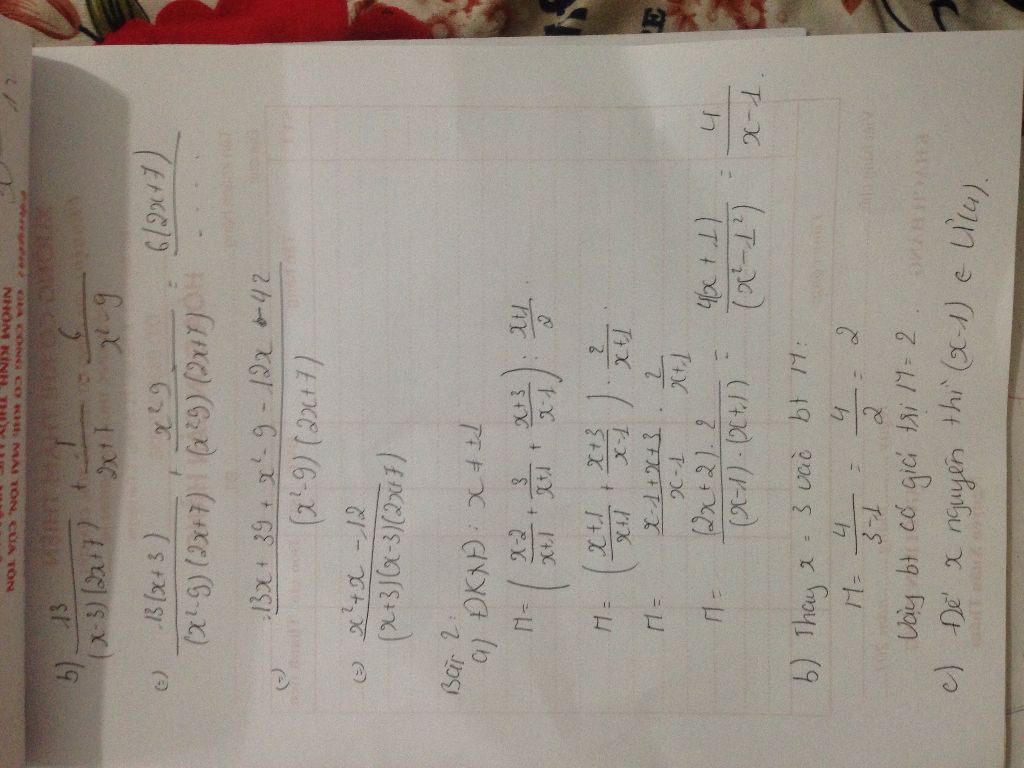 b) 13/(x-3)(2x+7) + 1/2x+7 = 6/x²-9
(=) 13(x+3)/(x²-9)(2x+7) + x²-9/(x²-9)(2x+7) = 6(2x+7)/....
(=) 13x+39+x²-9-12x-42/(x²-9)(2x+7)
(=) x²+x-12/(x+3)(x-3)(2x+7)
Bài 2:
a) ĐKXĐ: x ≠ ±1
M= (x-2/x+1 + 3/x+1 + x+3/x-1) : x+1/2.
M= (x+1/x+1 + x+3/x-1) . 2/x+1.
M= x-1+x+3/x-1 . 2/x+1
M= (2x+2).2/(x-1).(x+1) = 4(x+1)/(x²-1²) = 4/x-1.
b) Thay x = 3 vào bt M:
M= 4/3-1 = 4/2 = 2
Vậy bt có giá trị M=2.
c) Để x nguyên thì (x-1) ∈ Ư(4).
NHÔM KÍNH, THỦY LỰC
GIA CÔNG CƠ KHÍ MÁI TÔN, CỬA TÔN